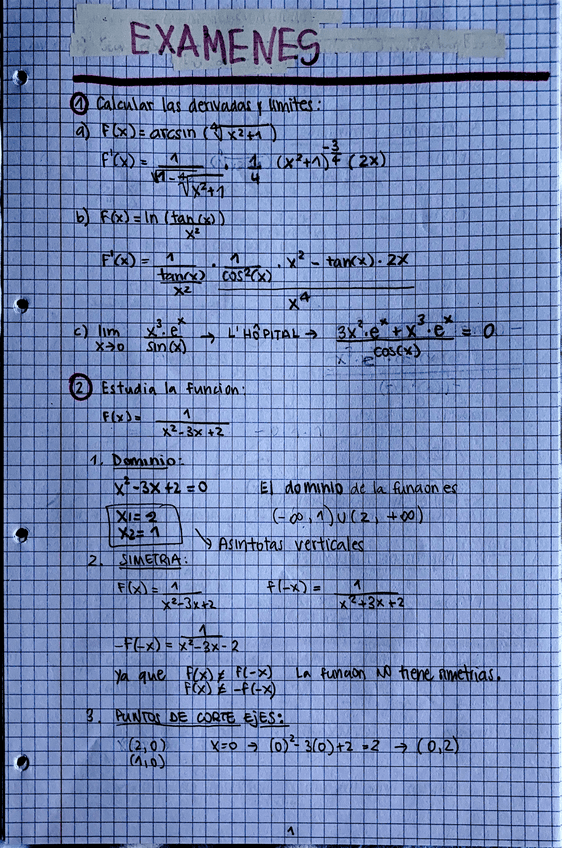 EXAMENES
① Calcular las derivadas y limites:
a) F(x)= arcsin (∜(x²+1))
F'(x) = 1/√(1-∜(x²+1)) · 1/4 (x²+1)^(-3/4) (2x)
b) F(x) = ln (tan(x)/x²)
F'(x) = 1/(tan(x)/x²) · (1/cos²(x) · x² - tan(x) · 2x)/x⁴
c) lim x→0 (x³·eˣ)/sin(x) → L'HÔPITAL → (3x²·eˣ + x³·eˣ)/cos(x) = 0
② Estudia la funcion:
F(x)= 1/(x²-3x+2)
1. Dominio:
x²-3x+2 = 0 El dominio de la funcion es
X1= 2 (-∞, 1) ∪ (2, +∞)
X2= 1
↘ Asintotas verticales
2. SIMETRIA:
F(x) = 1/(x²-3x+2) f(-x) = 1/(x²+3x+2)
-F(-x) = 1/(x²-3x-2)
Ya que F(x) ≠ F(-x) La funcion NO tiene simetrias.
F(x) ≠ -F(-x)
3. PUNTOS DE CORTE EJES:
(2,0) X=0 → (0)²-3(0)+2 =2 → (0,2)
(1,0)
1